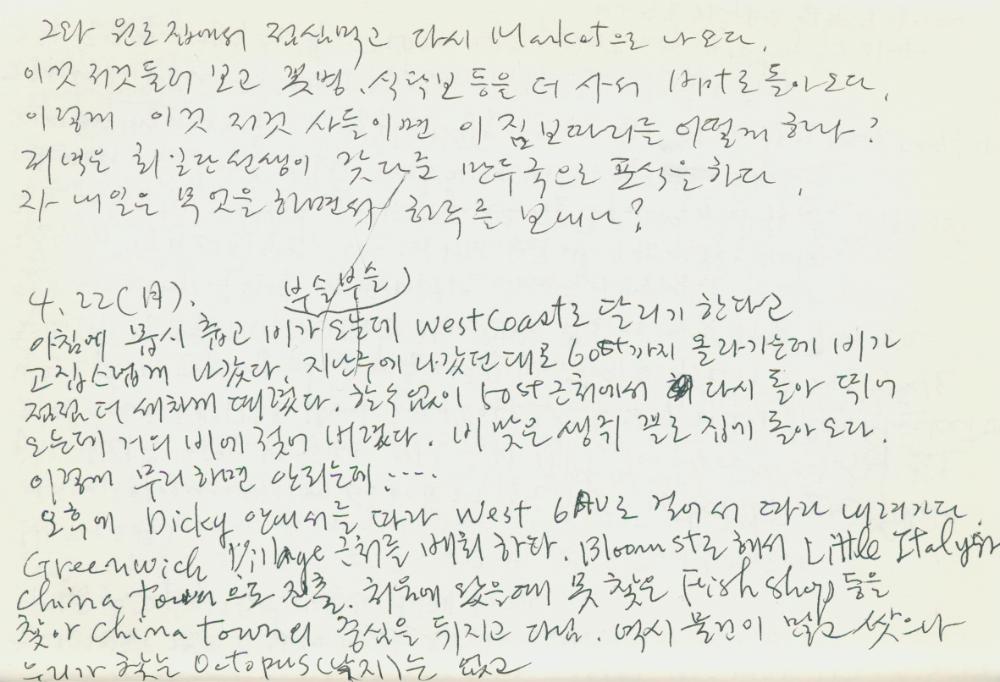 그와 원로집에서 점심먹고 다시 Market으로 나오다.
이것 저것 둘러 보고 꽃병, 식탁보 등을 더 사서 apt로 돌아오다.
이렇게 이것 저것 사들이면 이 짐보따리를 어떻게 하나?
저녁은 최일단선생이 갖다준 만두국으로 포식을 하다.
자 내일은 무엇을 하면서 하루를 보내나?
4. 22(月).
부슬부슬
아침에 몹시 춥고 비가 오는데 west coast로 달리기 한다고
고집스럽게 나갔다. 지난주에 나갔던대로 60st까지 올라가는데 비가
점점 더 세차게 때렸다. 할수없이 50st 근처에서 다시 돌아 뛰어
오는데 거의 비에 젖어 버렸다. 비 맞은 생쥐 꼴로 집에 돌아오다.
이렇게 무리하면 안되는데....
오후에 Dicky 안내서를 따라 West 6AV로 걸어서 따라 내려가다.
Greenwich Village 근처를 배회하다. Bloom st로 해서 Little Italy와
China Town으로 진출. 처음에 왔을때 못 찾은 Fish Shop 등을
찾아 China town의 중심을 뒤지고 다님. 역시 물건이 많고 쌋으나
우리가 찾는 Octopus(낙지)는 없고